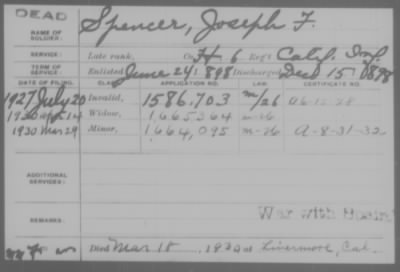 DEAD
NAME OF SOLDIER: Spencer, Joseph F.
SERVICE: Late rank, Co. H. 6 Reg't Calif. Inf.
TERM OF SERVICE: Enlisted June 24 1898 Discharged Dec 15 1898
DATE OF FILING. CLASS. APPLICATION NO. CERTIFICATE NO.
1927 July 20 Invalid, 1586,703 m/26
1930 apr 14 Widow, 1665364 m-26
1930 Mar 29 Minor, 1664,095 m-26 A-8-31-32
ADDITIONAL SERVICES:
War with Spain
REMARKS:
Died Mar 18, 1930 at Livermore, Cal.